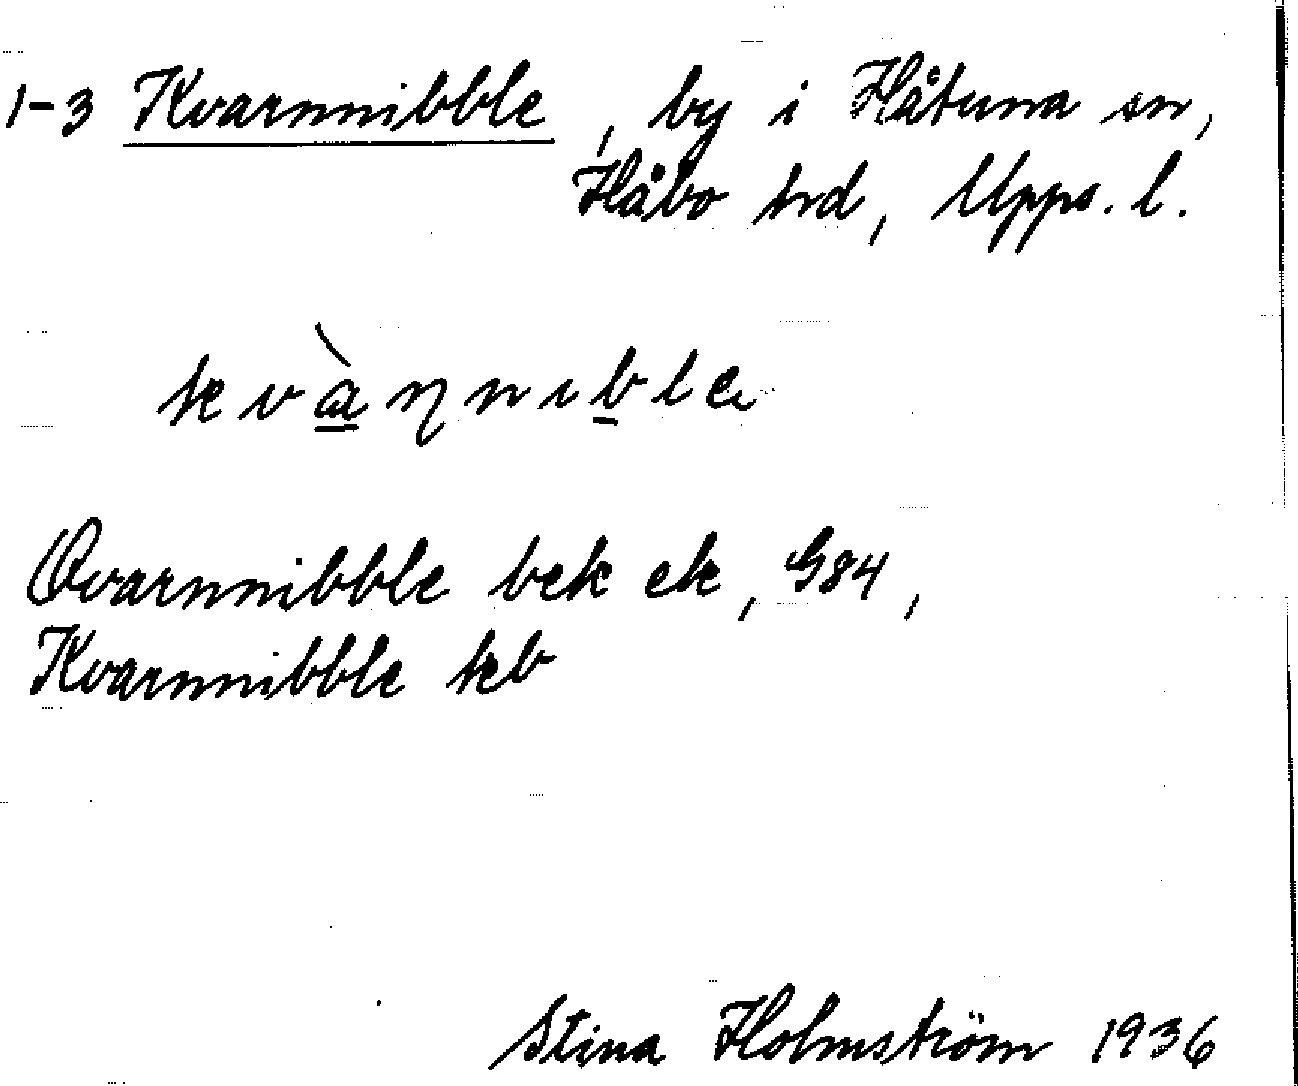 1-3 Kvarnnibble, by i Håtuna sn,
Håbo hrd, Upps. l.
kvàŋnıble
Qvarnnibble bek ek, G84,
Kvarnnibble kb
Stina Holmström 1936